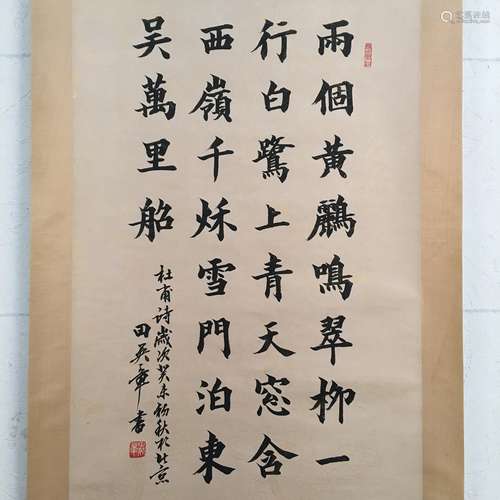 兩個黄鸝鳴翠柳一
行白鷺上青天窓含
西嶺千秌雪門泊東
吴萬里船
杜甫詩歲次癸未初秋於北京
田英章書